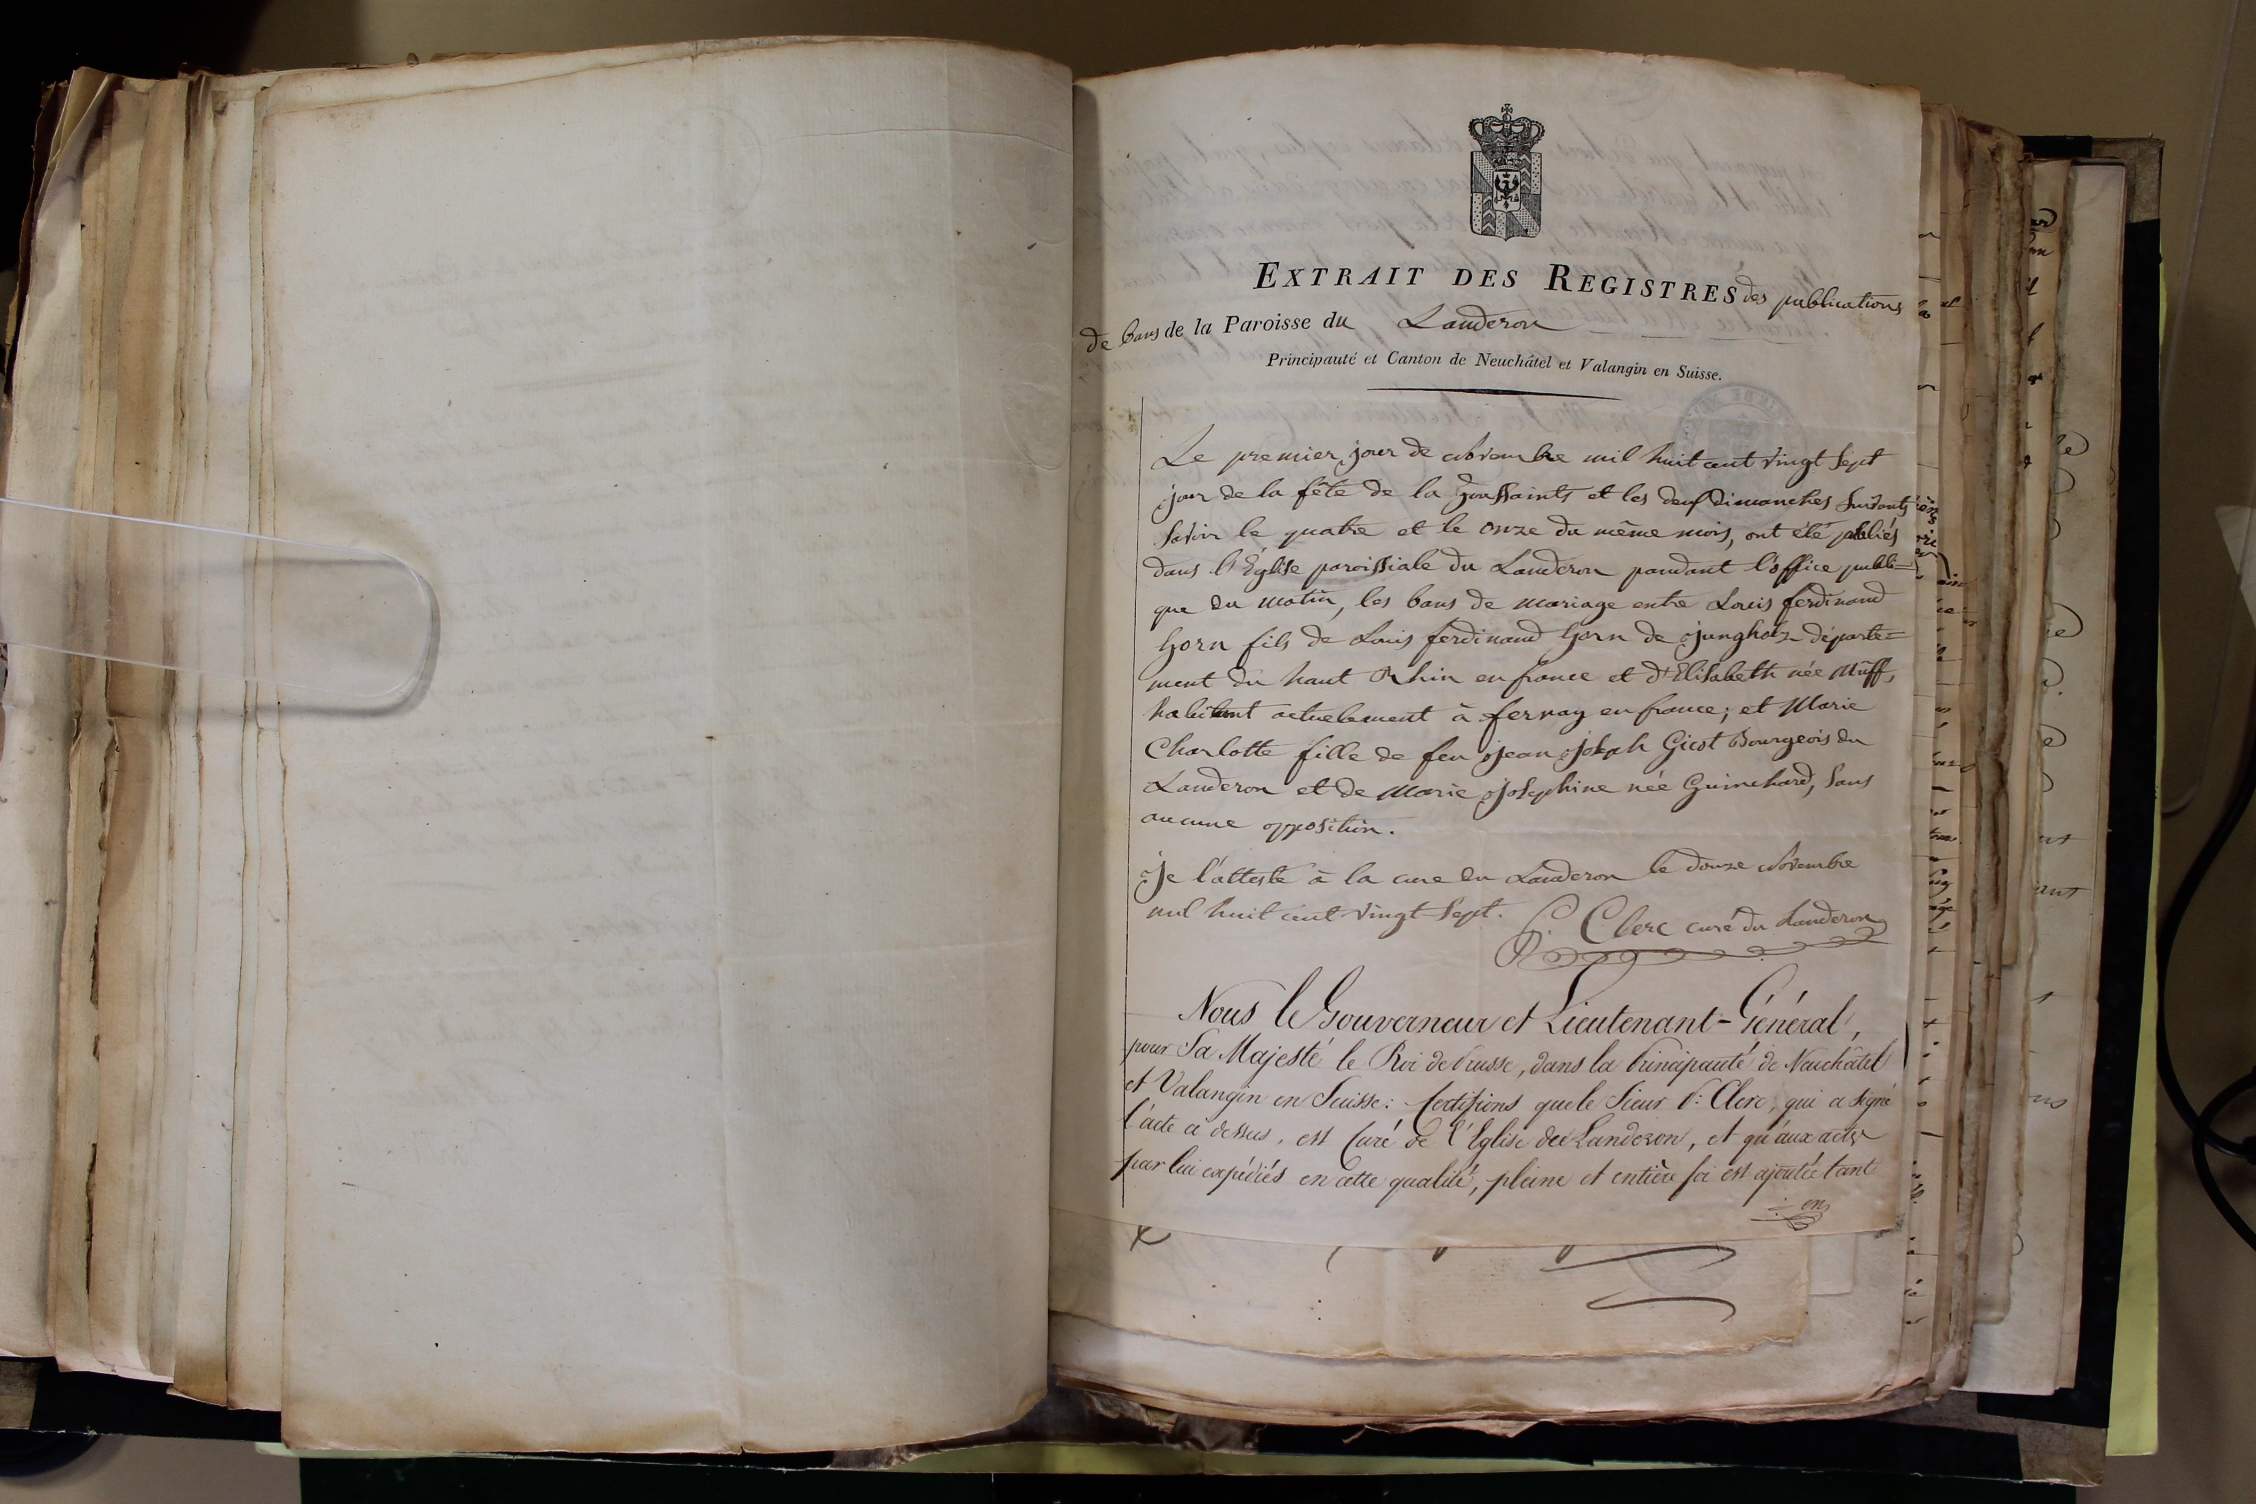 EXTRAIT DES REGISTRES des publications
de bans de la Paroisse du Landeron
Principauté et Canton de Neuchâtel et Valangin en Suisse.
Le premier jour de Novembre mil huit cent vingt Sept
jour de la fête de la Toussaints et les deux Dimanches Suivants
Savoir le quatre et le onze du même mois, ont été publiés
dans l'Église paroissiale du Landeron pendant l'office publi=
que du matin, les bans de mariage entre Louis ferdinand
horn fils de Louis ferdinand horn de jungholz département
ment du haut Rhin en france et d'Elisabeth née Muff,
habitant actuelement à fernay en france; et Marie
Charlotte fille de feu jean joseph Gicot Bourgeois du
Landeron et de Marie josephine née Guinchard, Sans
aucune opposition.
je l'atteste à la cure du Landeron le douze Novembre
mil huit cent vingt Sept.
Clerc curé du Landeron
Nous le Gouverneur et Lieutenant-Général,
pour Sa Majesté le Roi de Prusse, dans la Principauté de Neuchâtel
et Valangin en Suisse: Certifions que le Sieur P: Clerc, qui a signé
l'acte ci dessus, est Curé de l'Eglise du Landeron, et qu'aux actes
par lui expédiés en cette qualité, pleine et entière foi est ajoutée tant
en